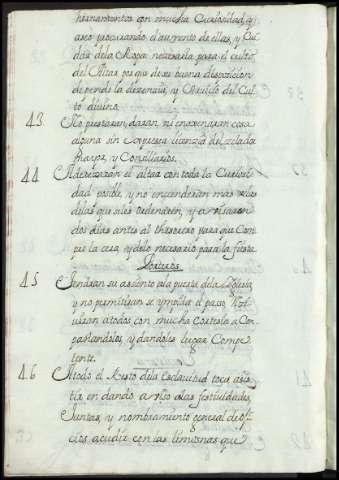 hornamentos con mucha Curiosidad, y
aseo procurando el aumento de ellas, y Cui
dar dela Ropa necesaria para el culto
del Altar, pues que de su buena disposicion
depende la desencia, y Obsequio del Cul
to divino.
43 No prestaran, daran ni enagenaran cosa
alguna sin Expresa licencia del zelador
thesorº, y Consiliarios.
44 Aderezaran el altar con toda la Curiosi
dad posible, y no encenderan mas velas
delas que seles ordenaren, y avisaran
dos dias antes al thesorero para que Com
pre la cera, y delo necesario para la fiesta.
Porteros.
45 Tendran su asiento ala puerta dela Yglesia
y no permitiran se ympida el paso, Rez
viran atodos con mucha Cortesia a Com
pañandolos, y dandoles lugar Compe
tente.
46 Atodo el Resto dela Esclavitud toca asis
tir en dando aviso alas festividades,
Juntas, y nombramiento general de ofi
cios acudir con las limosnas que